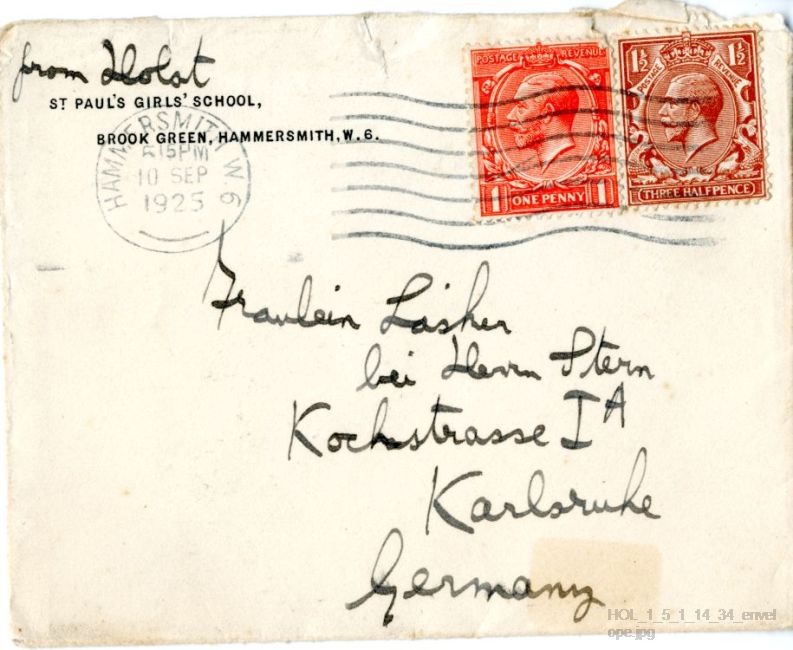 from Holst
ST PAUL'S GIRLS' SCHOOL,
BROOK GREEN, HAMMERSMITH, W. 6.
HAMMERSMITH W.6
5.15PM
10 SEP
1925
POSTAGE REVENUE
1 ONE PENNY 1
1½ 1½
POSTAGE REVENUE
THREE HALFPENCE
Fraulein Lasker
bei Herrn Stern
Kochstrasse I A
Karlsruhe
Germany
HOL_1_5_1_14_34_envel
ope.jpg